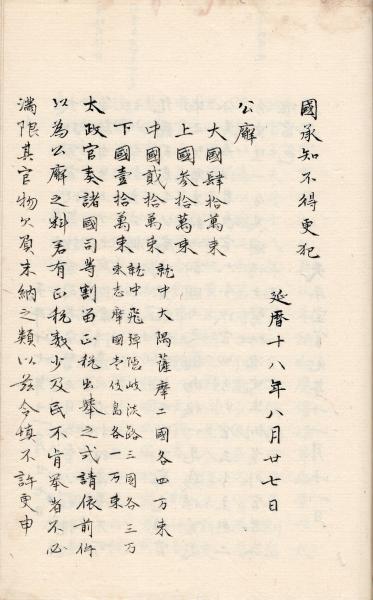 國承知不得更犯
延暦十八年八月廿七日
公廨
大國肆拾萬束
上國參拾萬束
中國貳拾萬束 就中大隅薩摩二國各四万束
下國壹拾萬束 就中飛騨隠岐淡路三國各三万
束志摩國壱伎島各一万束
太政官奏諸國司等割留正税出擧之式請依前件
以為公廨之料若有正税数少及民不肯挙者不必
満限其官物欠負未納之類以茲令填不許更申